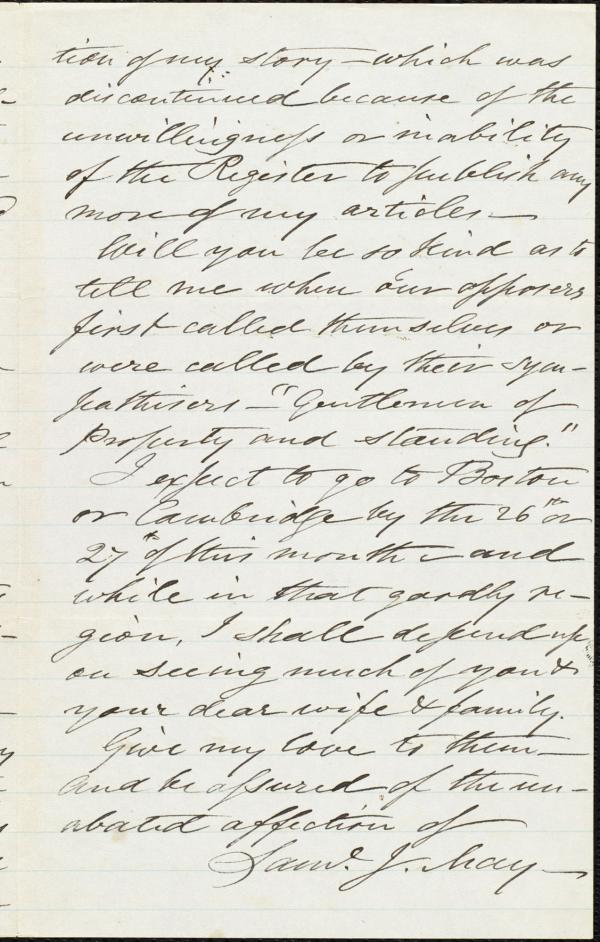 tion of my story — which was
discontinued because of the
unwillingness or inability
of the Register to publish any
more of my articles —
Will you be so kind as to
tell me when our opposers
first called themselves or
were called by their sym-
pathisers — "Gentlemen of
Property and standing."
I expect to go to Boston
or Cambridge by the 26th or
27th of this month — and
while in that goodly re-
gion, I shall depend up
on seeing much of you &
your dear wife & family.
Give my love to them —
and be assured of the un-
abated affection of
Saml. J. May —